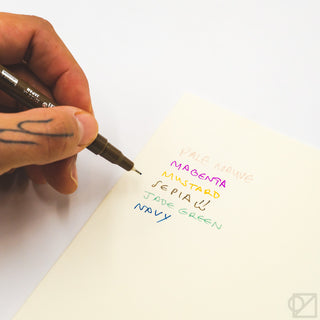 PALE MAUVE
MAGENTA
MUSTARD
SEPIA!!
JADE GREEN
NAVY